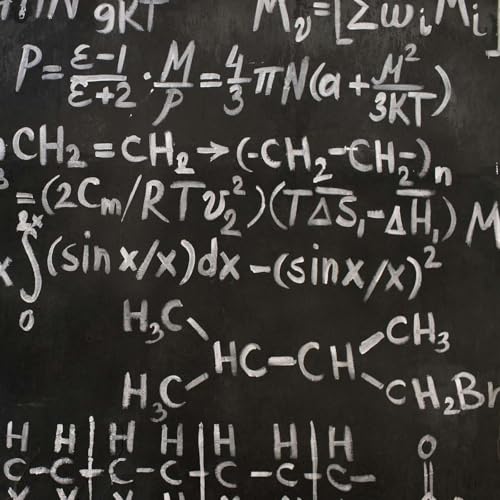 9KT M_v=[Σw_iM_i]
P=(ε-1)/(ε+2)·M/ρ=4/3πN(a+M²/3KT)
CH₂=CH₂→(-CH₂-CH₂-)ₙ
=(2Cₘ/RTv₂²)(TΔS₁-ΔH₁) M
x∫₀²ˣ(sinx/x)dx-(sinx/x)²
H₃C CH₃
HC-CH
H₃C CH₂Br
H H H H H H H
C-C-C-C-C-C-C- O